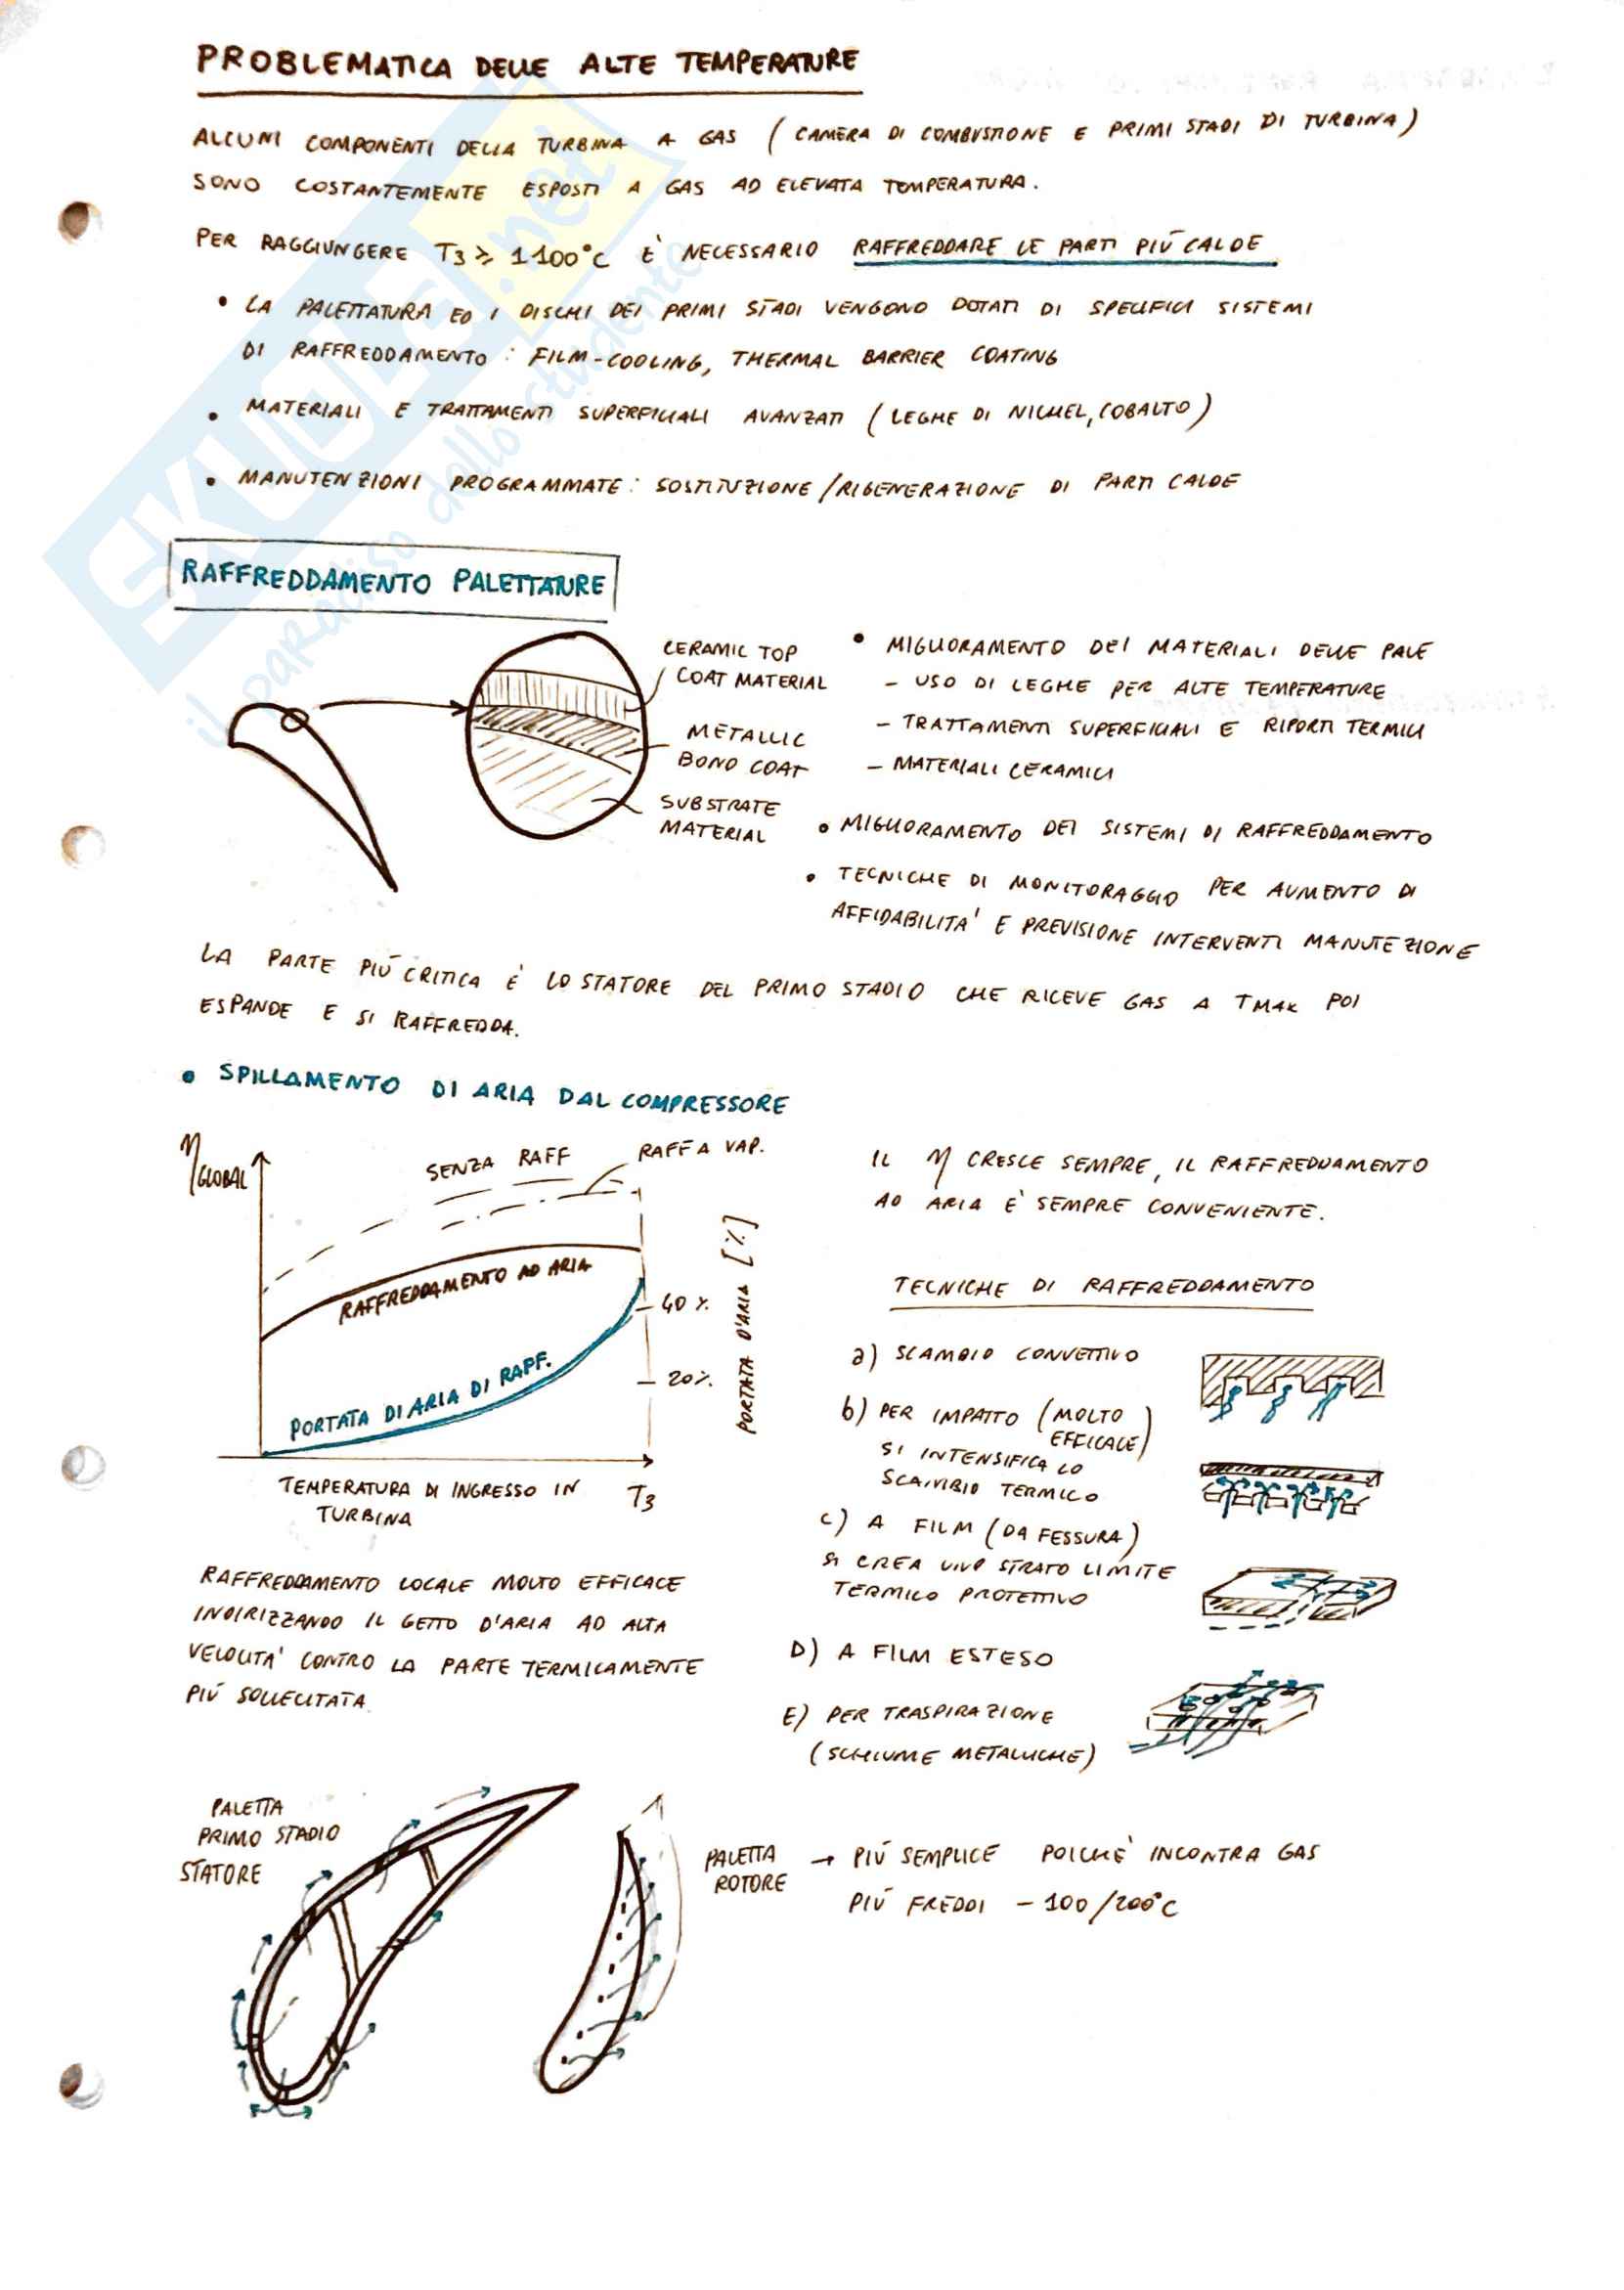 PROBLEMATICA DELLE ALTE TEMPERATURE
ALCUNI COMPONENTI DELLA TURBINA A GAS (CAMERA DI COMBUSTIONE E PRIMI STADI DI TURBINA)
SONO COSTANTEMENTE ESPOSTI A GAS AD ELEVATA TEMPERATURA.
PER RAGGIUNGERE T3 ≥ 1100°C È NECESSARIO RAFFREDDARE LE PARTI PIÙ CALDE
• LA PALETTATURA ED I DISCHI DEI PRIMI STADI VENGONO DOTATI DI SPECIFICI SISTEMI
DI RAFFREDDAMENTO: FILM-COOLING, THERMAL BARRIER COATING
• MATERIALI E TRATTAMENTI SUPERFICIALI AVANZATI (LEGHE DI NICHEL, COBALTO)
• MANUTENZIONI PROGRAMMATE: SOSTITUZIONE/RIGENERAZIONE DI PARTI CALDE
SKUOLA.net
il paradiso dello studente
RAFFREDDAMENTO PALETTATURE
CERAMIC TOP
COAT MATERIAL
METALLIC
BOND COAT
SUBSTRATE
MATERIAL
• MIGLIORAMENTO DEI MATERIALI DELLE PALE
- USO DI LEGHE PER ALTE TEMPERATURE
- TRATTAMENTI SUPERFICIALI E RIPORTI TERMICI
- MATERIALI CERAMICI
• MIGLIORAMENTO DEI SISTEMI DI RAFFREDDAMENTO
• TECNICHE DI MONITORAGGIO PER AUMENTO DI
AFFIDABILITA' E PREVISIONE INTERVENTI MANUTEZIONE
LA PARTE PIÙ CRITICA È LO STATORE DEL PRIMO STADIO CHE RICEVE GAS A TMAX POI
ESPANDE E SI RAFFREDDA.
• SPILLAMENTO DI ARIA DAL COMPRESSORE
η GLOBAL
SENZA RAFF
RAFF A VAP.
RAFFREDDAMENTO AD ARIA
PORTATA DI ARIA DI RAFF.
40%
20%
PORTATA D'ARIA [%]
TEMPERATURA DI INGRESSO IN
TURBINA
T3
IL η CRESCE SEMPRE, IL RAFFREDDAMENTO
AD ARIA È SEMPRE CONVENIENTE.
TECNICHE DI RAFFREDDAMENTO
a) SCAMBIO CONVETTIVO
b) PER IMPATTO (MOLTO
EFFICACE)
SI INTENSIFICA LO
SCAMBIO TERMICO
c) A FILM (DA FESSURA)
SI CREA UNO STRATO LIMITE
TERMICO PROTETTIVO
D) A FILM ESTESO
E) PER TRASPIRAZIONE
(SCHIUME METALLICHE)
RAFFREDDAMENTO LOCALE MOLTO EFFICACE
INDIRIZZANDO IL GETTO D'ARIA AD ALTA
VELOCITA' CONTRO LA PARTE TERMICAMENTE
PIÙ SOLLECITATA
PALETTA
PRIMO STADIO
STATORE
PALETTA
ROTORE
→ PIÙ SEMPLICE POICHÈ INCONTRA GAS
PIÙ FREDDI - 100/200°C